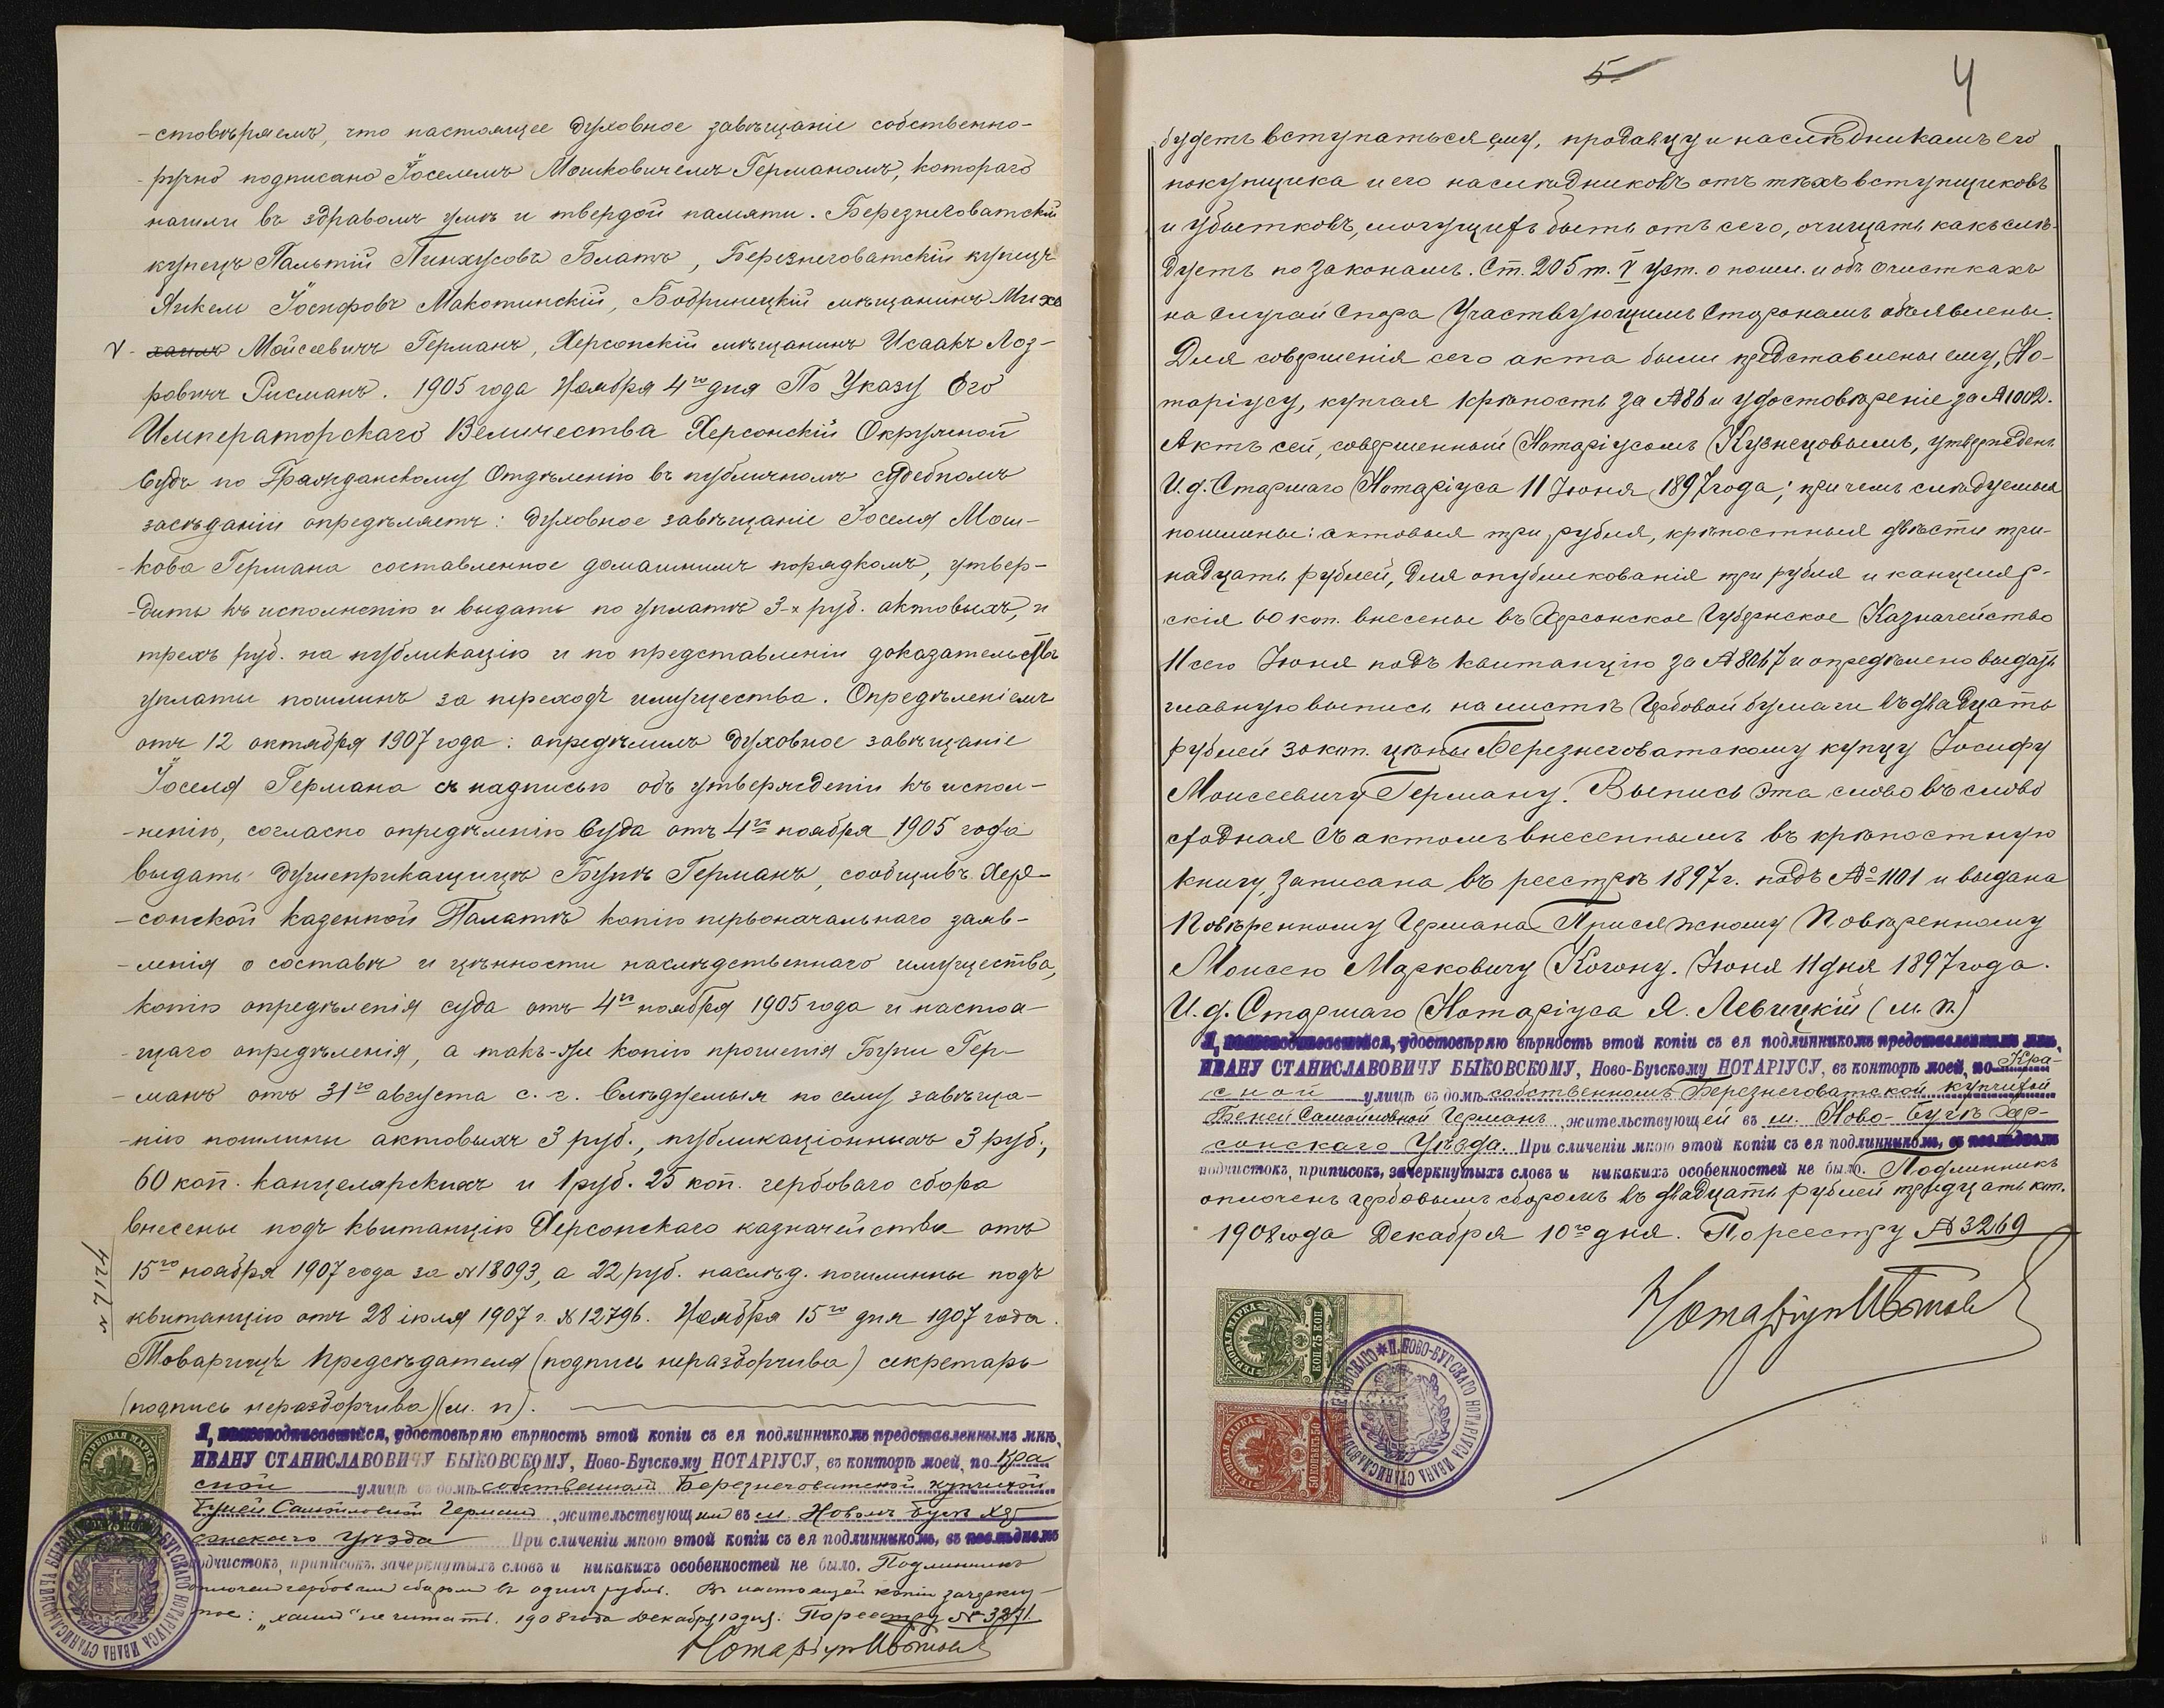 -стовѣряемъ, что настоящее духовное завѣщаніе собственно-
-ручно подписано Іоселемъ Мошковичемъ Германомъ, котораго
нашли въ здравомъ умѣ и твердой памяти. Березнеговатскій
купецъ Пальтій Пинхусовъ Блатъ, Березнеговатскій купецъ
Янкель Іосифовъ Макотинскій, Бобринецкій мѣщанинъ Миха
v- хаилъ Мойсеевичъ Германъ, Херсонскій мѣщанинъ Исаакъ Лоз-
ровичъ Рисманъ. 1905 года Ноября 4го дня По Указу Его
Императорскаго Величества Херсонскій Окружной
Судъ по Гражданскому Отдѣленію въ публичномъ судебномъ
засѣданіи опредѣляетъ: духовное завѣщаніе Іоселя Мош-
-кова Германа составленное домашнимъ порядкомъ, утвер-
-дить къ исполненію и выдать по уплатѣ 3-х руб. актовыхъ, и
трехъ руб. на публикацію и по представленіи доказательствъ
уплаты пошлинъ за переходъ имущества. Опредѣленіемъ
отъ 12 октября 1907 года: опредѣлилъ духовное завѣщаніе
Іоселя Германа съ надписью объ утвержденіи къ испол-
-ненію, согласно опредѣленію Суда отъ 4го ноября 1905 года
выдать душеприкащицѣ Бунѣ Германъ, сообщивъ Хер-
-сонской Казенной Палатѣ копію первоначальнаго заяв-
-ленія о составѣ и цѣнности наслѣдственнаго имущества,
копію опредѣленія суда отъ 4го ноября 1905 года и настоя-
-щаго опредѣленія, а такъ-же копію прошенія Буни Гер-
-манъ отъ 31го августа с. г. Слѣдуемыя по сему завѣща-
-нію пошлины актовыхъ 3 руб., публикаціонныхъ 3 руб.,
60 коп. канцелярскихъ и 1 руб. 25 коп. гербоваго сбора
внесены подъ квитанцію Херсонскаго казначейства отъ
15го ноября 1907 года за № 18093, а 22 руб. наслѣд. пошлины подъ
квитанцію отъ 28 іюля 1907 г. № 12796. Ноября 15го дня 1907 года.
Товарищъ Предсѣдателя (подпись неразборчива) секретарь
(подпись неразборчива) (м. п).
Я, нижеподписавшійся, удостовѣряю вѣрность этой копіи съ ея подлинникомъ представленнымъ мнѣ,
ИВАНУ СТАНИСЛАВОВИЧУ БЫКОВСКОМУ, Ново-Бугскому НОТАРІУСУ, въ конторѣ моей, по Кра
сной улицѣ въ домѣ собственномъ Березнеговатской купчихой
Буней Самойловной Германъ, жительствующей въ м. Новомъ Бугѣ Хер
сонскаго уѣзда При сличеніи мною этой копіи съ ея подлинникомъ, въ послѣднемъ
подчистокъ, приписокъ, зачеркнутыхъ словъ и никакихъ особенностей не было. Подлинникъ
оплоченъ гербовымъ сборомъ въ одинъ рубль. Въ настоящей копіи зачеркну-
тое: „хаилъ" не читать. 1908 года Декабря 10 дня. По реестру № 3271.
ГЕРБОВАЯ МАРКА
5
4
будетъ вступаться ему, продавцу и наслѣдникамъ его
покупщика и его наслѣдниковъ отъ тѣхъ вступщиковъ
и убытковъ, могущихъ быть отъ сего, очищать какъ слѣ-
дуетъ по законамъ. Ст. 205 т. V уст. о пошл. и объ очисткахъ
на случай спора участвующимъ сторонамъ объявлены.
Для совершенія сего акта были представлены ему, Но-
таріусу, купчая крѣпость за № 86 и удостовѣреніе за № 1002.
Актъ сей, совершенный Нотаріусомъ Кузнецовымъ, утвержденъ
И. д. Старшаго Нотаріуса 11 Іюня 1897 года; причемъ слѣдуемыя
пошлины: актовыя три рубля, крѣпостныя двѣсти три-
надцать рублей, для опубликованія три рубля и канцеляр-
скія 60 коп. внесены въ Херсонское Губернское Казначейство
11 сего Іюня подъ квитанцію за № 8067 и опредѣлено выдать
главную выпись на листѣ гербовой бумаги въ двадцать
рублей 30 коп. цѣны Березнеговатскому купцу Іосифу
Моисеевичу Герману. Выпись эта слово въ слово
сходная съ актомъ внесеннымъ въ крѣпостную
книгу, записана въ реестръ 1897 г. подъ № 1101 и выдана
Повѣренному Германа Присяжному Повѣренному
Моисею Марковичу Когону. Іюня 11 дня 1897 года.
И. д. Старшаго Нотаріуса Я. Левицкій (м. п.)
Я, нижеподписавшійся, удостовѣряю вѣрность этой копіи съ ея подлинникомъ представленнымъ мнѣ,
ИВАНУ СТАНИСЛАВОВИЧУ БЫКОВСКОМУ, Ново-Бугскому НОТАРІУСУ, въ конторѣ моей, по Кра-
сной улицѣ въ домѣ собственномъ Березнеговатской купчихой
Беней Самойловной Германъ, жительствующей въ м. Ново-Бугѣ Хер-
сонскаго Уѣзда. При сличеніи мною этой копіи съ ея подлинникомъ, въ послѣднемъ
подчистокъ, приписокъ, зачеркнутыхъ словъ и никакихъ особенностей не было. Подлинникъ
оплоченъ гербовымъ сборомъ въ двадцать рублей тридцать коп.
1908 года Декабря 10го дня. По реестру № 3269
Нотаріусъ
ГЕРБОВАЯ МАРКА
75 КОП
ГЕРБОВАЯ МАРКА
50 КОПѢЕКЪ 50
Н.-БУГСКАГО НОТАРІУСА ИВАНА СТАНИСЛАВОВИЧА БЫКОВСКАГО